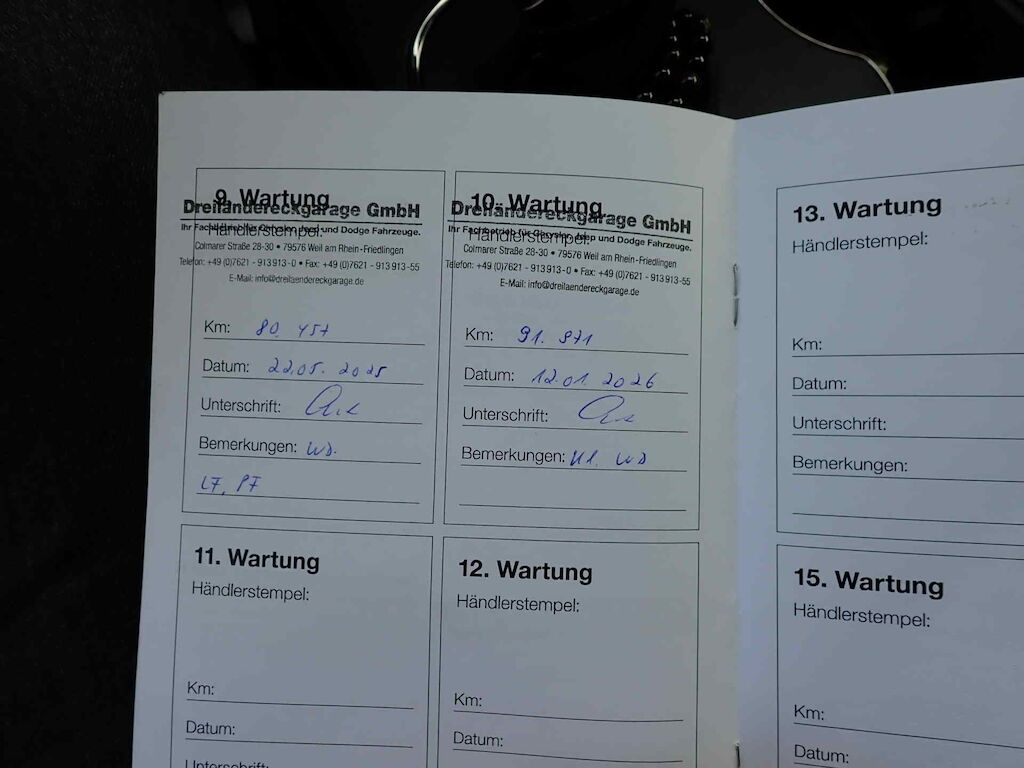 9. Wartung
Dreiländereckgarage GmbH
Ihr Fachbetrieb für Chrysler, Jeep und Dodge Fahrzeuge.
Händlerstempel:
Colmarer Straße 28-30 • 79576 Weil am Rhein-Friedlingen
Telefon: +49 (0)7621 - 913 913-0 • Fax: +49 (0)7621 - 913 913-55
E-Mail: info@dreilaendereckgarage.de
Km: 80.457
Datum: 22.05.2025
Unterschrift:
Bemerkungen: WD.
LF, PF
10. Wartung
Dreiländereckgarage GmbH
Ihr Fachbetrieb für Chrysler, Jeep und Dodge Fahrzeuge.
Händlerstempel:
Colmarer Straße 28-30 • 79576 Weil am Rhein-Friedlingen
Telefon: +49 (0)7621 - 913 913-0 • Fax: +49 (0)7621 - 913 913-55
E-Mail: info@dreilaendereckgarage.de
Km: 91.871
Datum: 12.01.2026
Unterschrift:
Bemerkungen: WD
11. Wartung
Händlerstempel:
Km:
Datum:
Unterschrift:
12. Wartung
Händlerstempel:
Km:
Datum:
13. Wartung
Händlerstempel:
Km:
Datum:
Unterschrift:
Bemerkungen:
15. Wartung
Händlerstempel:
Km:
Datum: